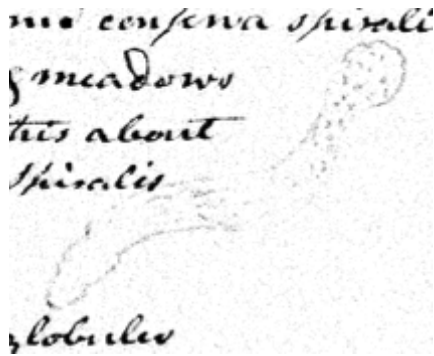 conferva spirali
meadows
this about
spiralis
globules